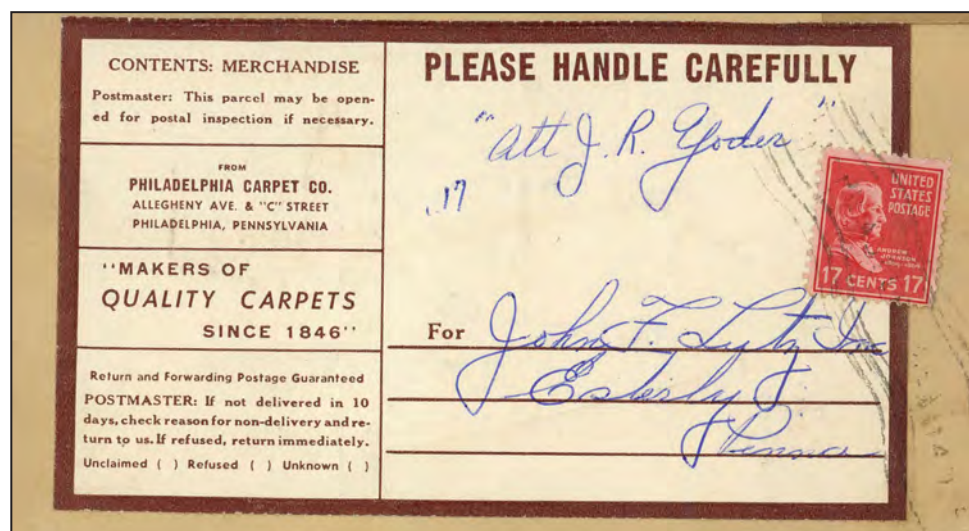 CONTENTS: MERCHANDISE
Postmaster: This parcel may be open-
ed for postal inspection if necessary.
FROM
PHILADELPHIA CARPET CO.
ALLEGHENY AVE. & "C" STREET
PHILADELPHIA, PENNSYLVANIA
"MAKERS OF
QUALITY CARPETS
SINCE 1846"
Return and Forwarding Postage Guaranteed
POSTMASTER: If not delivered in 10
days, check reason for non-delivery and re-
turn to us. If refused, return immediately.
Unclaimed ( ) Refused ( ) Unknown ( )
PLEASE HANDLE CAREFULLY
"Att J. R. Yoder"
.17
For John F. Lutz Inc
Esterly
Penna
UNITED
STATES
POSTAGE
ANDREW
JOHNSON
17 CENTS 17